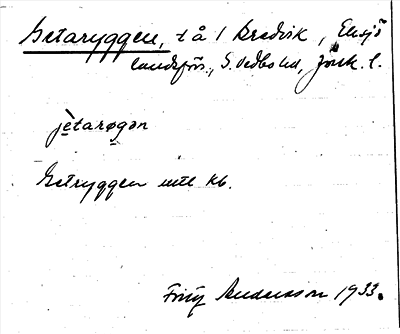 Getaryggen, t å 1 Bredvik, Eksjö
landsförs., S. Vedbo hd, Jönk. l.
jètarøgən
Getryggen enl kb.
Fritz Andersson 1933.